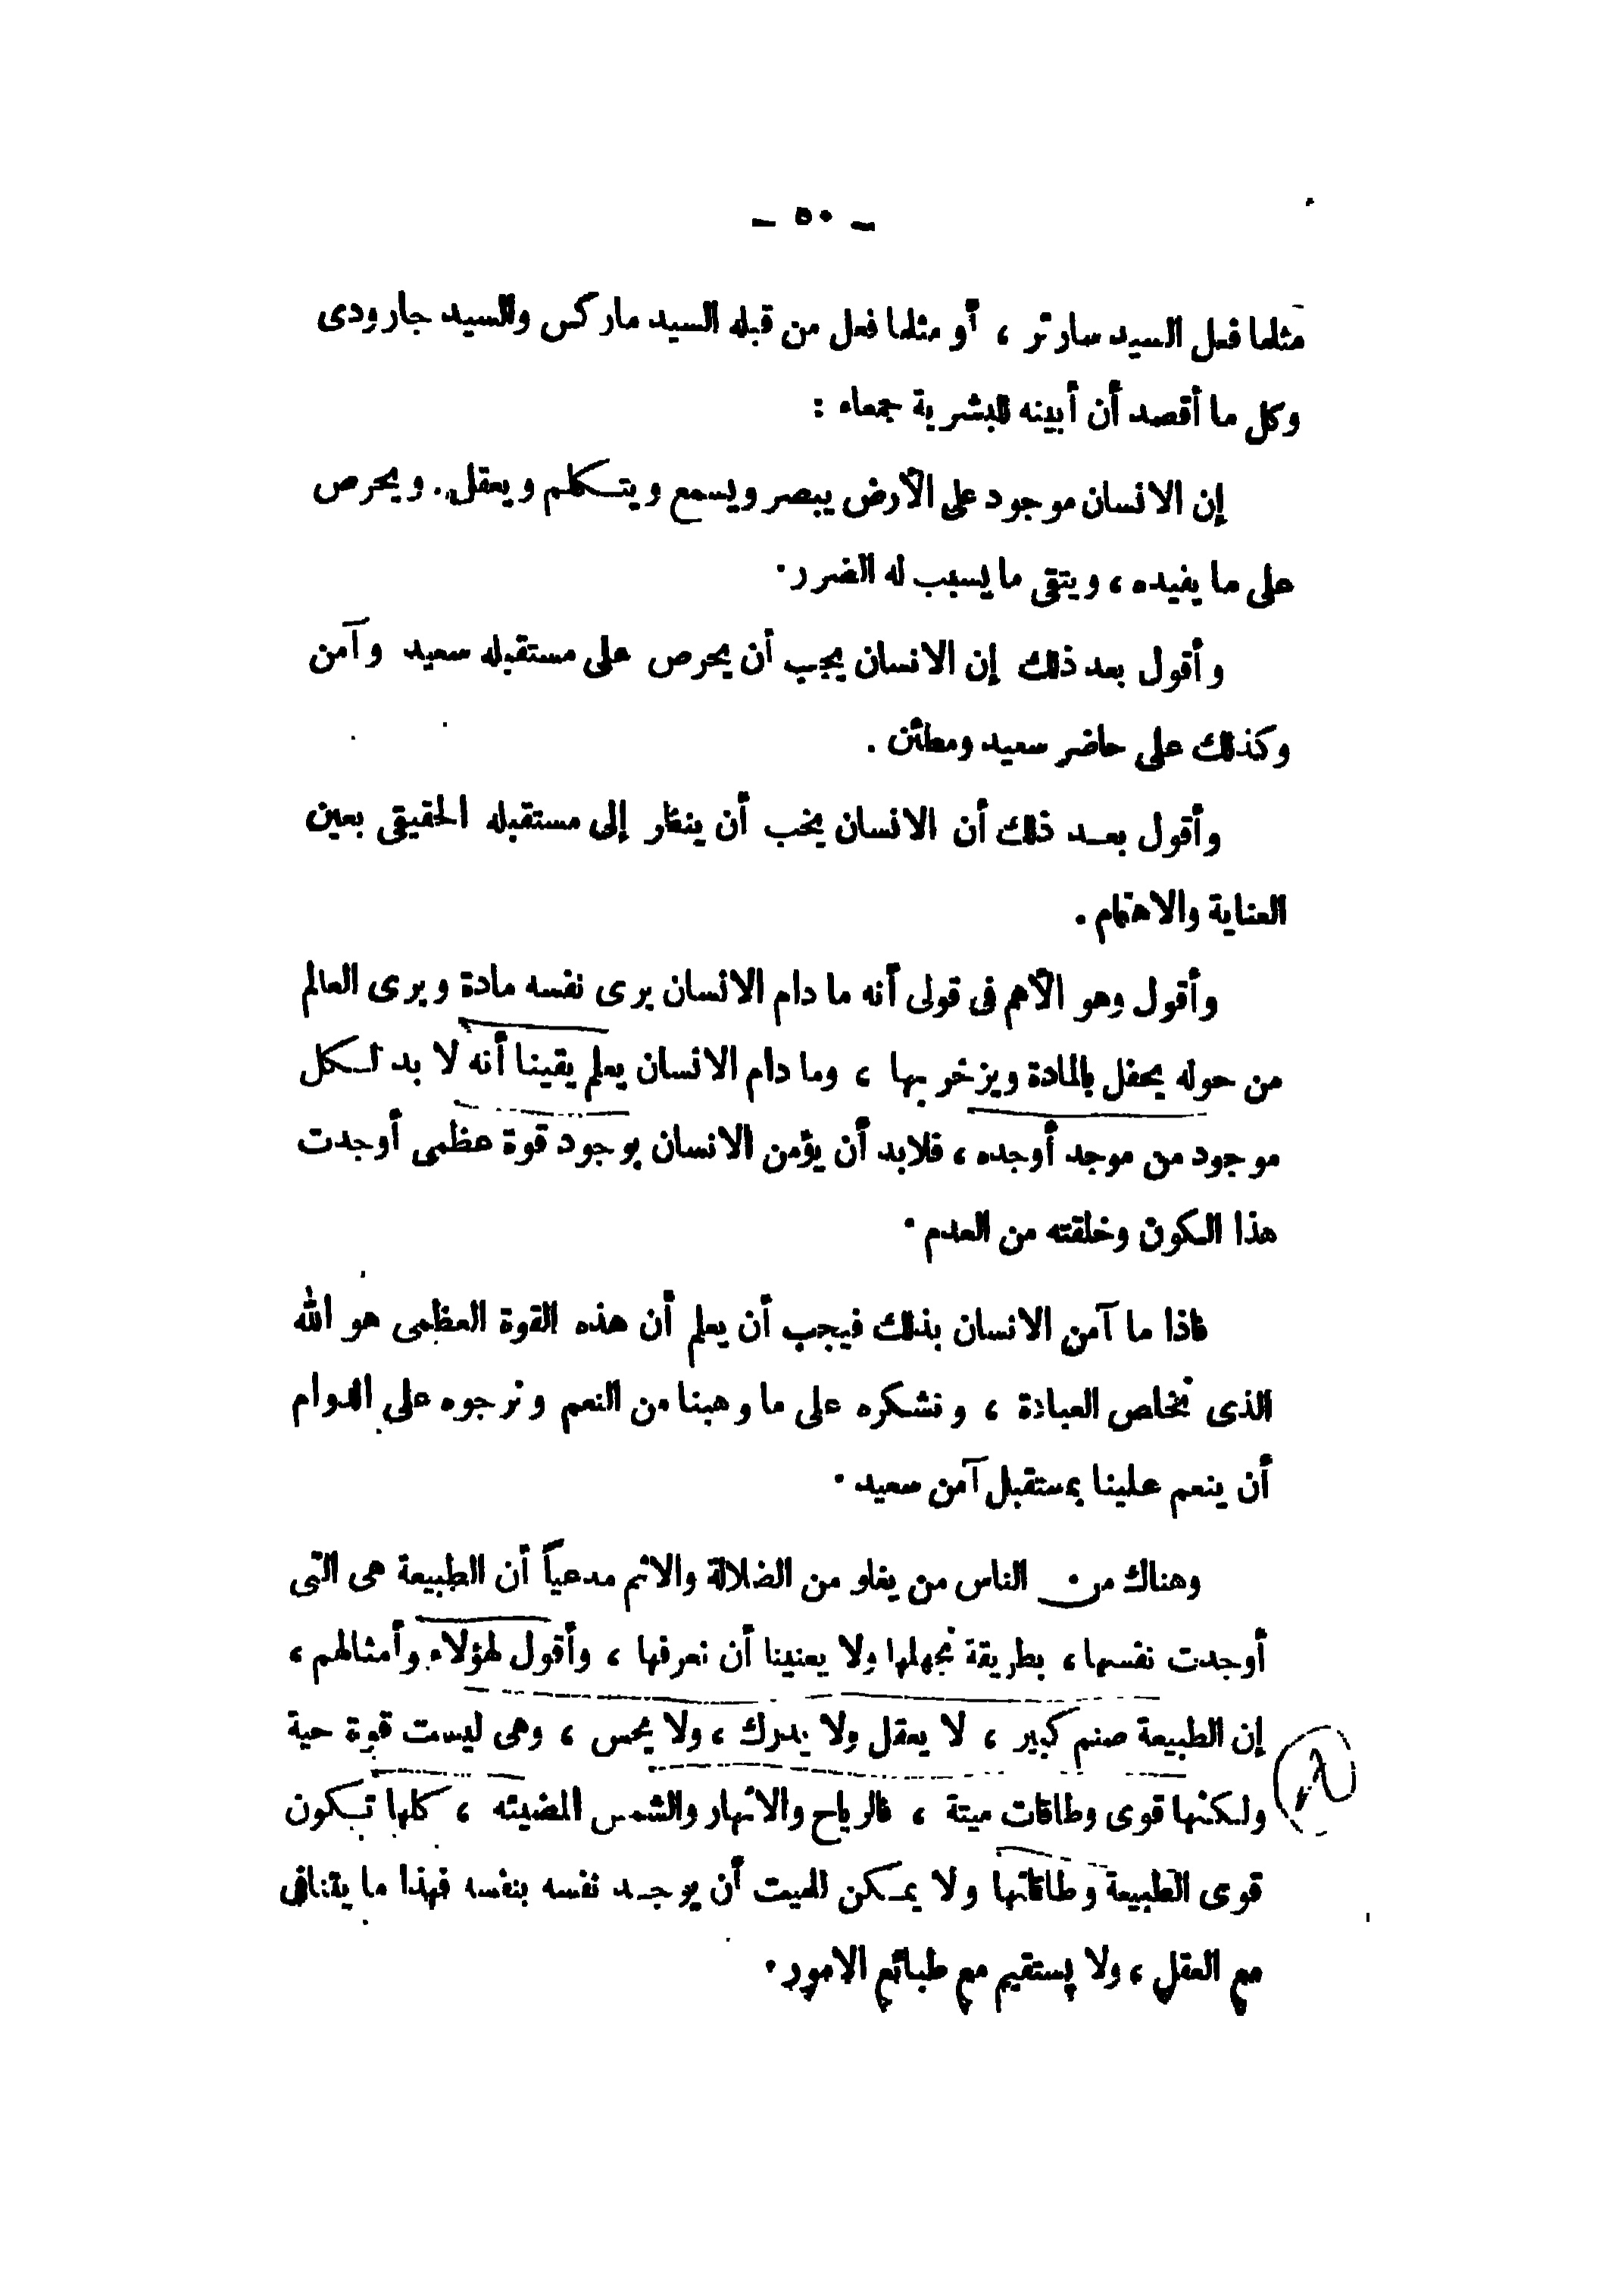 — ٥٠ —
مثلما فعل السيد سارتر ، أو مثلما فعل من قبله السيد ماركس والسيد جارودى
وكل ما أقصد أن أبينه للبشرية جمعاء :
إن الانسان موجود على الأرض يبصر ويسمع ويتكلم ويعقل . ويحرص
على ما يفيده ، ويتقى ما يسبب له الضرر .
وأقول بعد ذلك إن الانسان يجب أن يحرص على مستقبله سعيد وآمن
وكذلك على حاضر سعيد ومطئن .
وأقول بعد ذلك أن الانسان يخب أن ينظر إلى مستقبله الحقيقى بعين
العناية والاهتمام .
وأقول وهو الأهم فى قولى أنه ما دام الانسان يرى نفسه مادة ويرى العالم
من حوله يحفل بالمادة ويزخر بها ، وما دام الانسان يعلم يقينا أنه لا بد لكل
موجود من موجد أوجده ، فلابد أن يؤمن الانسان بوجود قوة عظمى أوجدت
هذا الكون وخلقته من العدم .
فاذا ما آمن الانسان بذلك فيجب أن يعلم أن هذه القوة العظمى هو الله
الذى نخلص العبادة ، ونشكره على ما وهبنا من النعم ونرجوه على الدوام
أن ينعم علينا بمستقبل آمن سعيد .
وهناك من الناس من يغلو من الضلالة والاثم مدعياً أن الطبيعة هى التى
أوجدت نفسها ، بطريقة نجهلها ولا يعنينا أن نعرفها ، وأقول لهؤلاء وأمثالهم ،
إن الطبيعة صنم كبير ، لا يعقل ولا يدرك ، ولا يحس ، وهى ليست قوة حية
ولكنها قوى وطاقات ميتة ، فالرياح والانهار والشمس المضيئه ، كلها تكون
قوى الطبيعة وطاقاتها ولا يمكن للميت أن يوجد نفسه بنفسه فهذا ما يتنافى
مع العقل ، ولا يستقيم مع طبائع الامور .